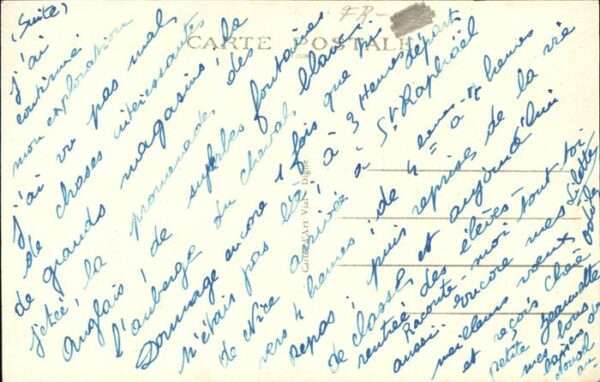 FR-
CARTE POSTALE
(Suite)
J'ai
continué
mon exploration
J'ai vu pas mal
de choses intéressantes
de grands magasins, la
jetée, la promenade des
Anglais, de superbes fontaines
l'auberge du cheval blanc.
Dommage encore 1 fois que tu
n'étais pas là, à 3 Heures départ
de Nice arrivée à St Raphaël
vers 4 heures, de 4 heures à heures
repos, puis reprise de la vie
de classe et aujourd'hui
rentrée des élèves -
Raconte-moi tout toi
aussi. encore mes
meilleurs vœux
et reçois chère
petite Jeannette
mes bons
baisers